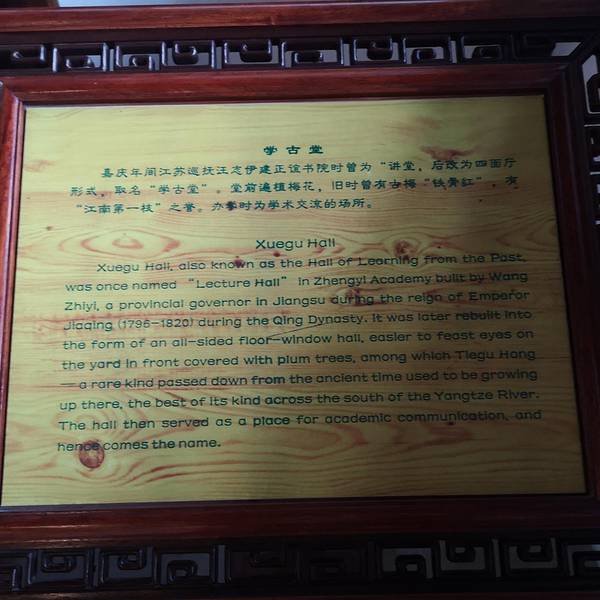 学古堂
嘉庆年间江苏巡抚汪志伊建正谊书院时曾为“讲堂，后改为四面厅
形式，取名“学古堂”。堂前遍植梅花，旧时曾有古梅“铁骨红”，有
“江南第一枝”之誉。办学时为学术交流的场所。
Xuegu Hall
Xuegu Hall, also known as the Hall of Learning from the Past,
was once named “Lecture Hall” in Zhengyi Academy built by Wang
Zhiyi, a provincial governor in Jiangsu during the reign of Emperor
Jiaqing (1796-1820) during the Qing Dynasty. It was later rebuilt into
the form of an all-sided floor-window hall, easier to feast eyes on
the yard in front covered with plum trees, among which Tiegu Hong
—a rare kind passed down from the ancient time used to be growing
up there, the best of its kind across the south of the Yangtze River.
The hall then served as a place for academic communication, and
hence comes the name.